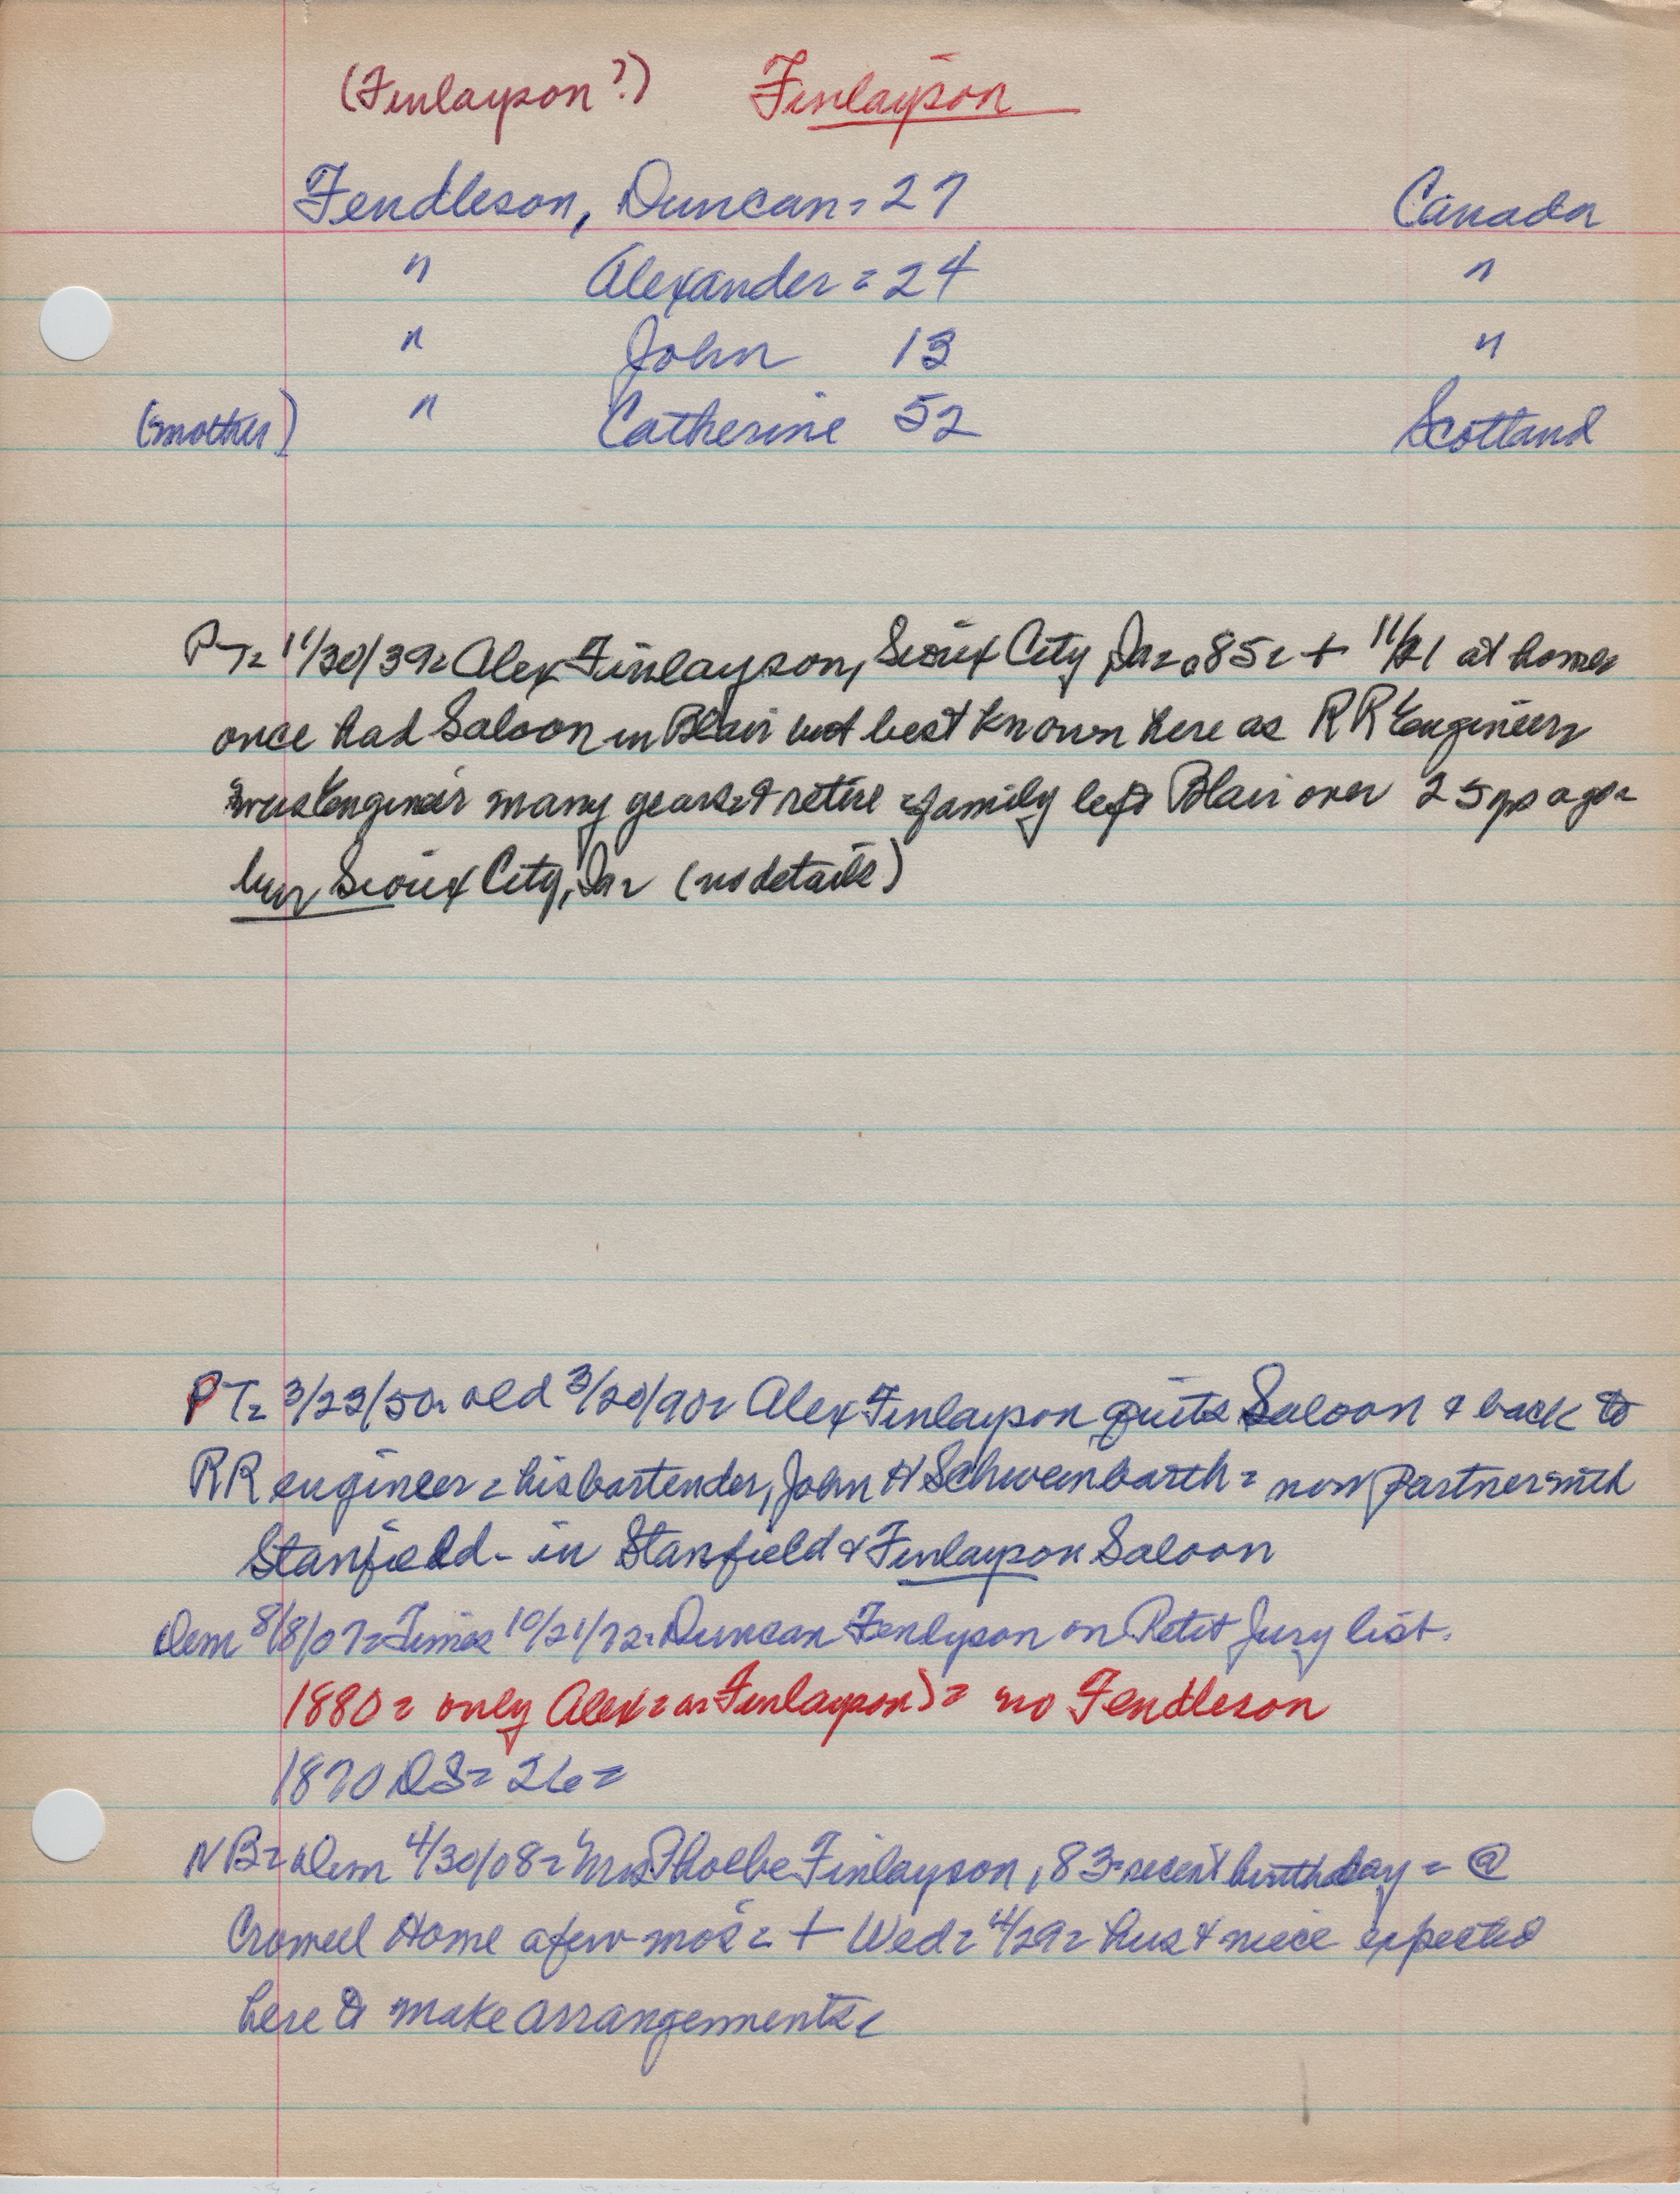 (Finlayson?) Finlayson
Fendleson, Duncan = 27 Canada
" Alexander = 24 "
" John 13 "
(mother) " Catherine 52 Scotland
PT= 11/30/39= Alex Finlayson, Sioux City, Ia= 85= + 11/21 at home
once had Saloon in Blair but best known here as RR Engineer
was Engineer many years & retire = family left Blair over 25 yrs ago=
bur Sioux City, Ia= (no details)
PT= 3/23/50= old 3/20/90= Alex Finlayson quits Saloon & back to
RR engineer = his bartender, John H Schweinbarth = now partner with
Stanfield - in Stanfield & Finlayson Saloon
Dem 8/8/07= Times 10/21/72= Duncan Fenlyson on Petit Jury list.
1880 = only Alex = as Finlayson) = no Fendleson
1870 DS= 26=
NB= Dem 4/30/08= Mrs Phoebe Finlayson, 83= recent birthday = @
Crowell Home a few mos = + Wed= 4/29= hus & niece expected
here to make arrangements=